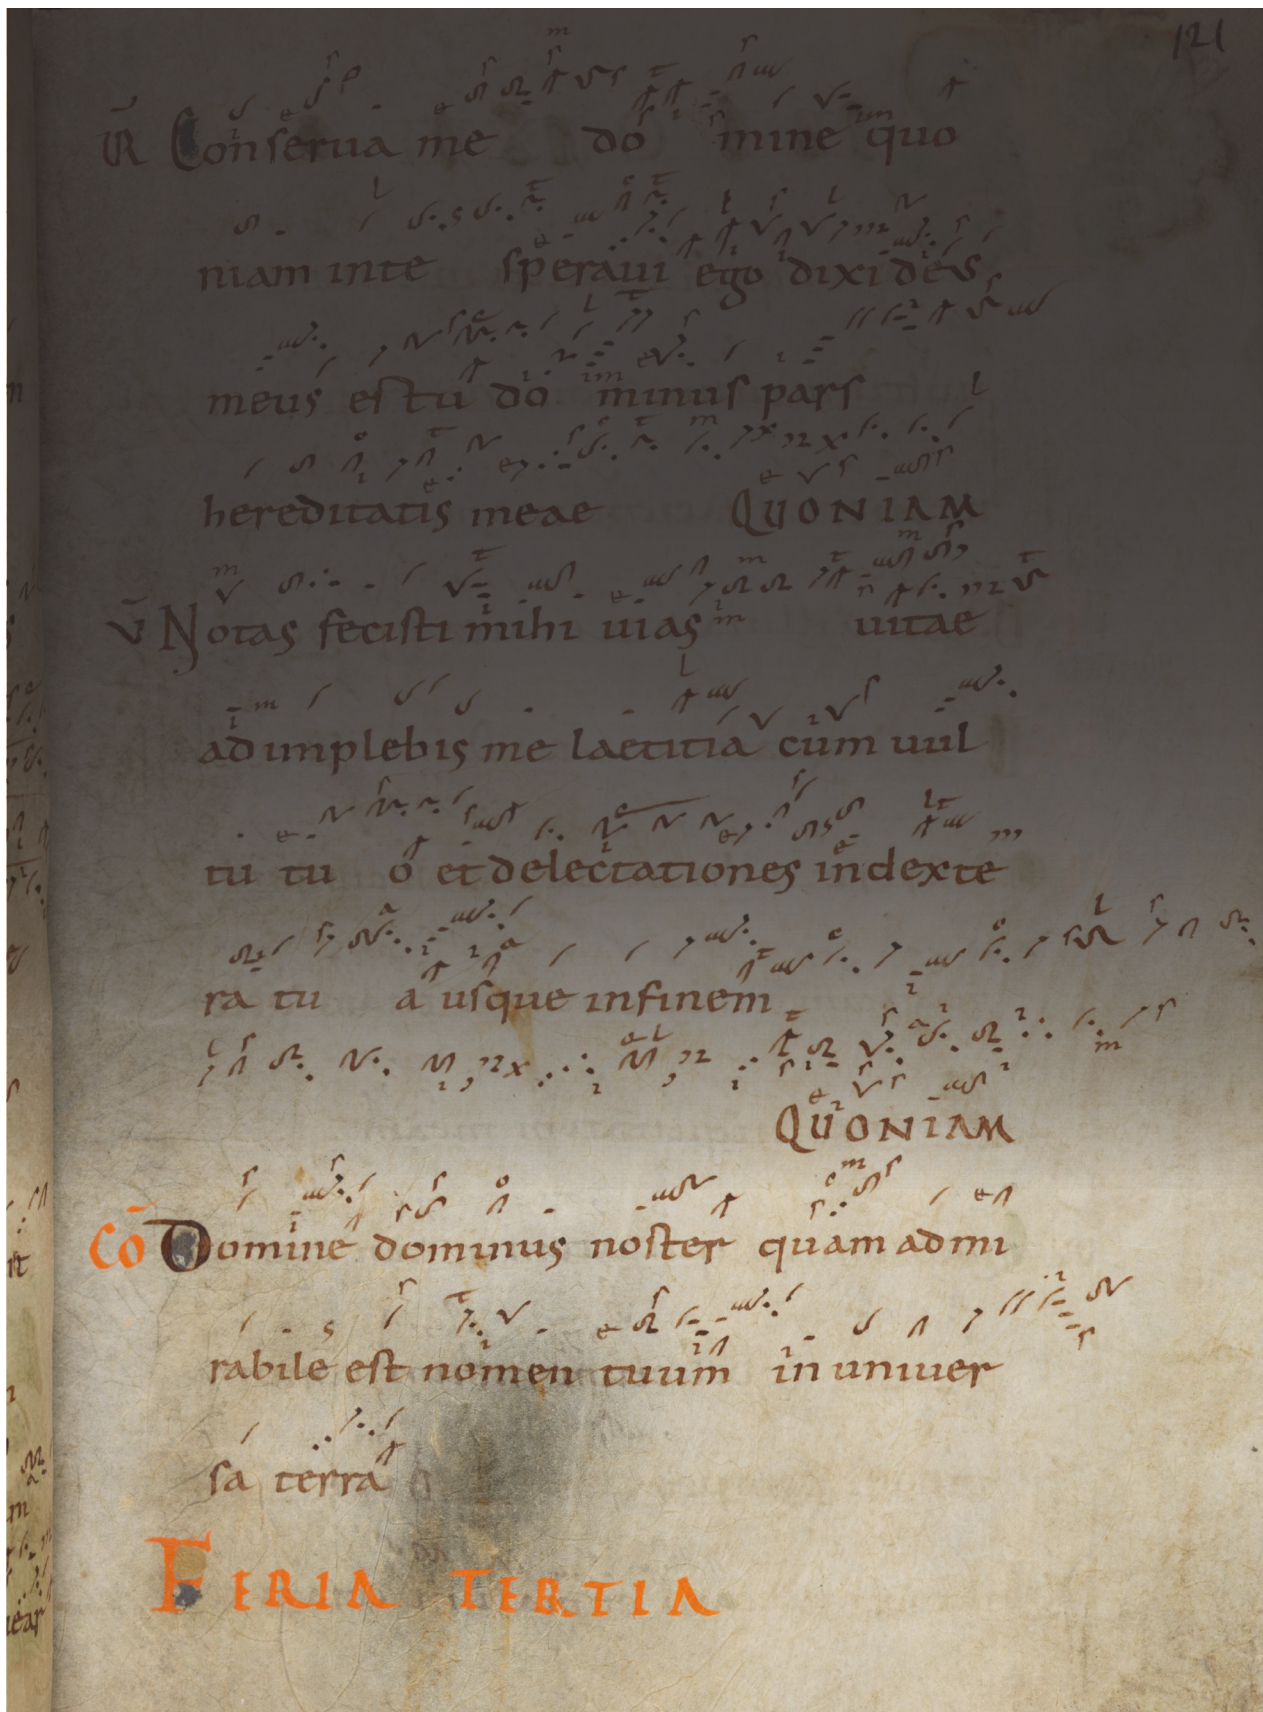 121
V̄R Conserua me do mine quo
niam inte speraui ego dixi deus
meus es tu do minus pars
hereditatis meae QUONIAM
V̄ Notas fecisti mihi uias uitae
adimplebis me laetitia cum uul
tu tu o et delectationes in dexte
ra tu a usque infinem
QUONIAM
C̄O Domine dominus noster quam admi
rabile est nomen tuum in uniuer
sa terra
FERIA TERTIA